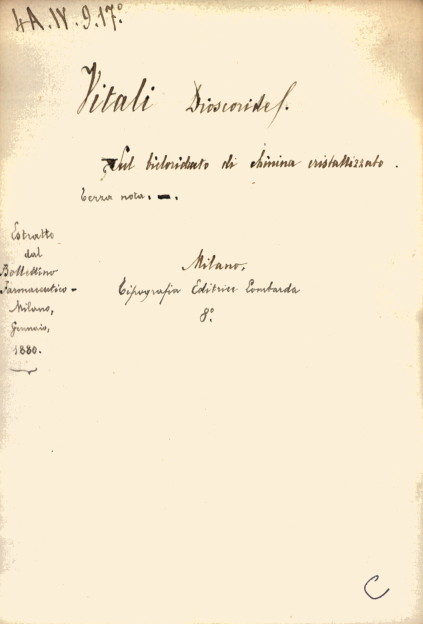 4A.IV.9.17º
Vitali Dioscoride.
Sul bicloridato di chinina cristallizzato.
Terza nota. —.
Estratto
dal
Bollettino
Farmaceutico -
Milano,
Gennaio,
1880.
Milano,
Tipografia Editrice Lombarda
8º
C